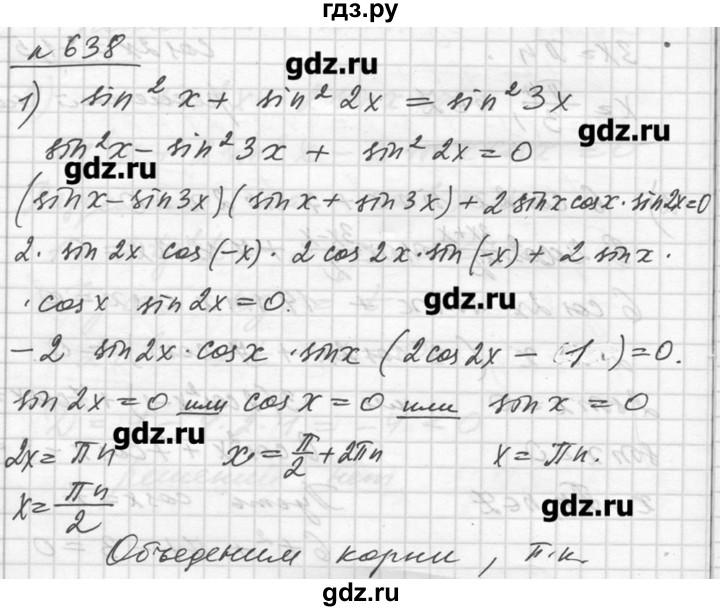 гдз.ру
№ 638
gdz.ru
1) sin² x + sin² 2x = sin² 3x
gdz.ru
sin² x - sin² 3x + sin² 2x = 0
gdz.ru
(sin x - sin 3x)(sin x + sin 3x) + 2 sin x cos x · sin 2x = 0
2 · sin 2x cos (-x) · 2 cos 2x · sin (-x) + 2 sin x ·
· cos x sin 2x = 0.
gdz.ru
- 2 sin 2x · cos x · sin x (2 cos 2x - 1) = 0.
sin 2x = 0 или cos x = 0 или sin x = 0
gdz.ru
2x = πn x = π/2 + 2πn x = πn.
x = πn/2
gdz.ru
Объеденим корни, т.к.
gdz.ru